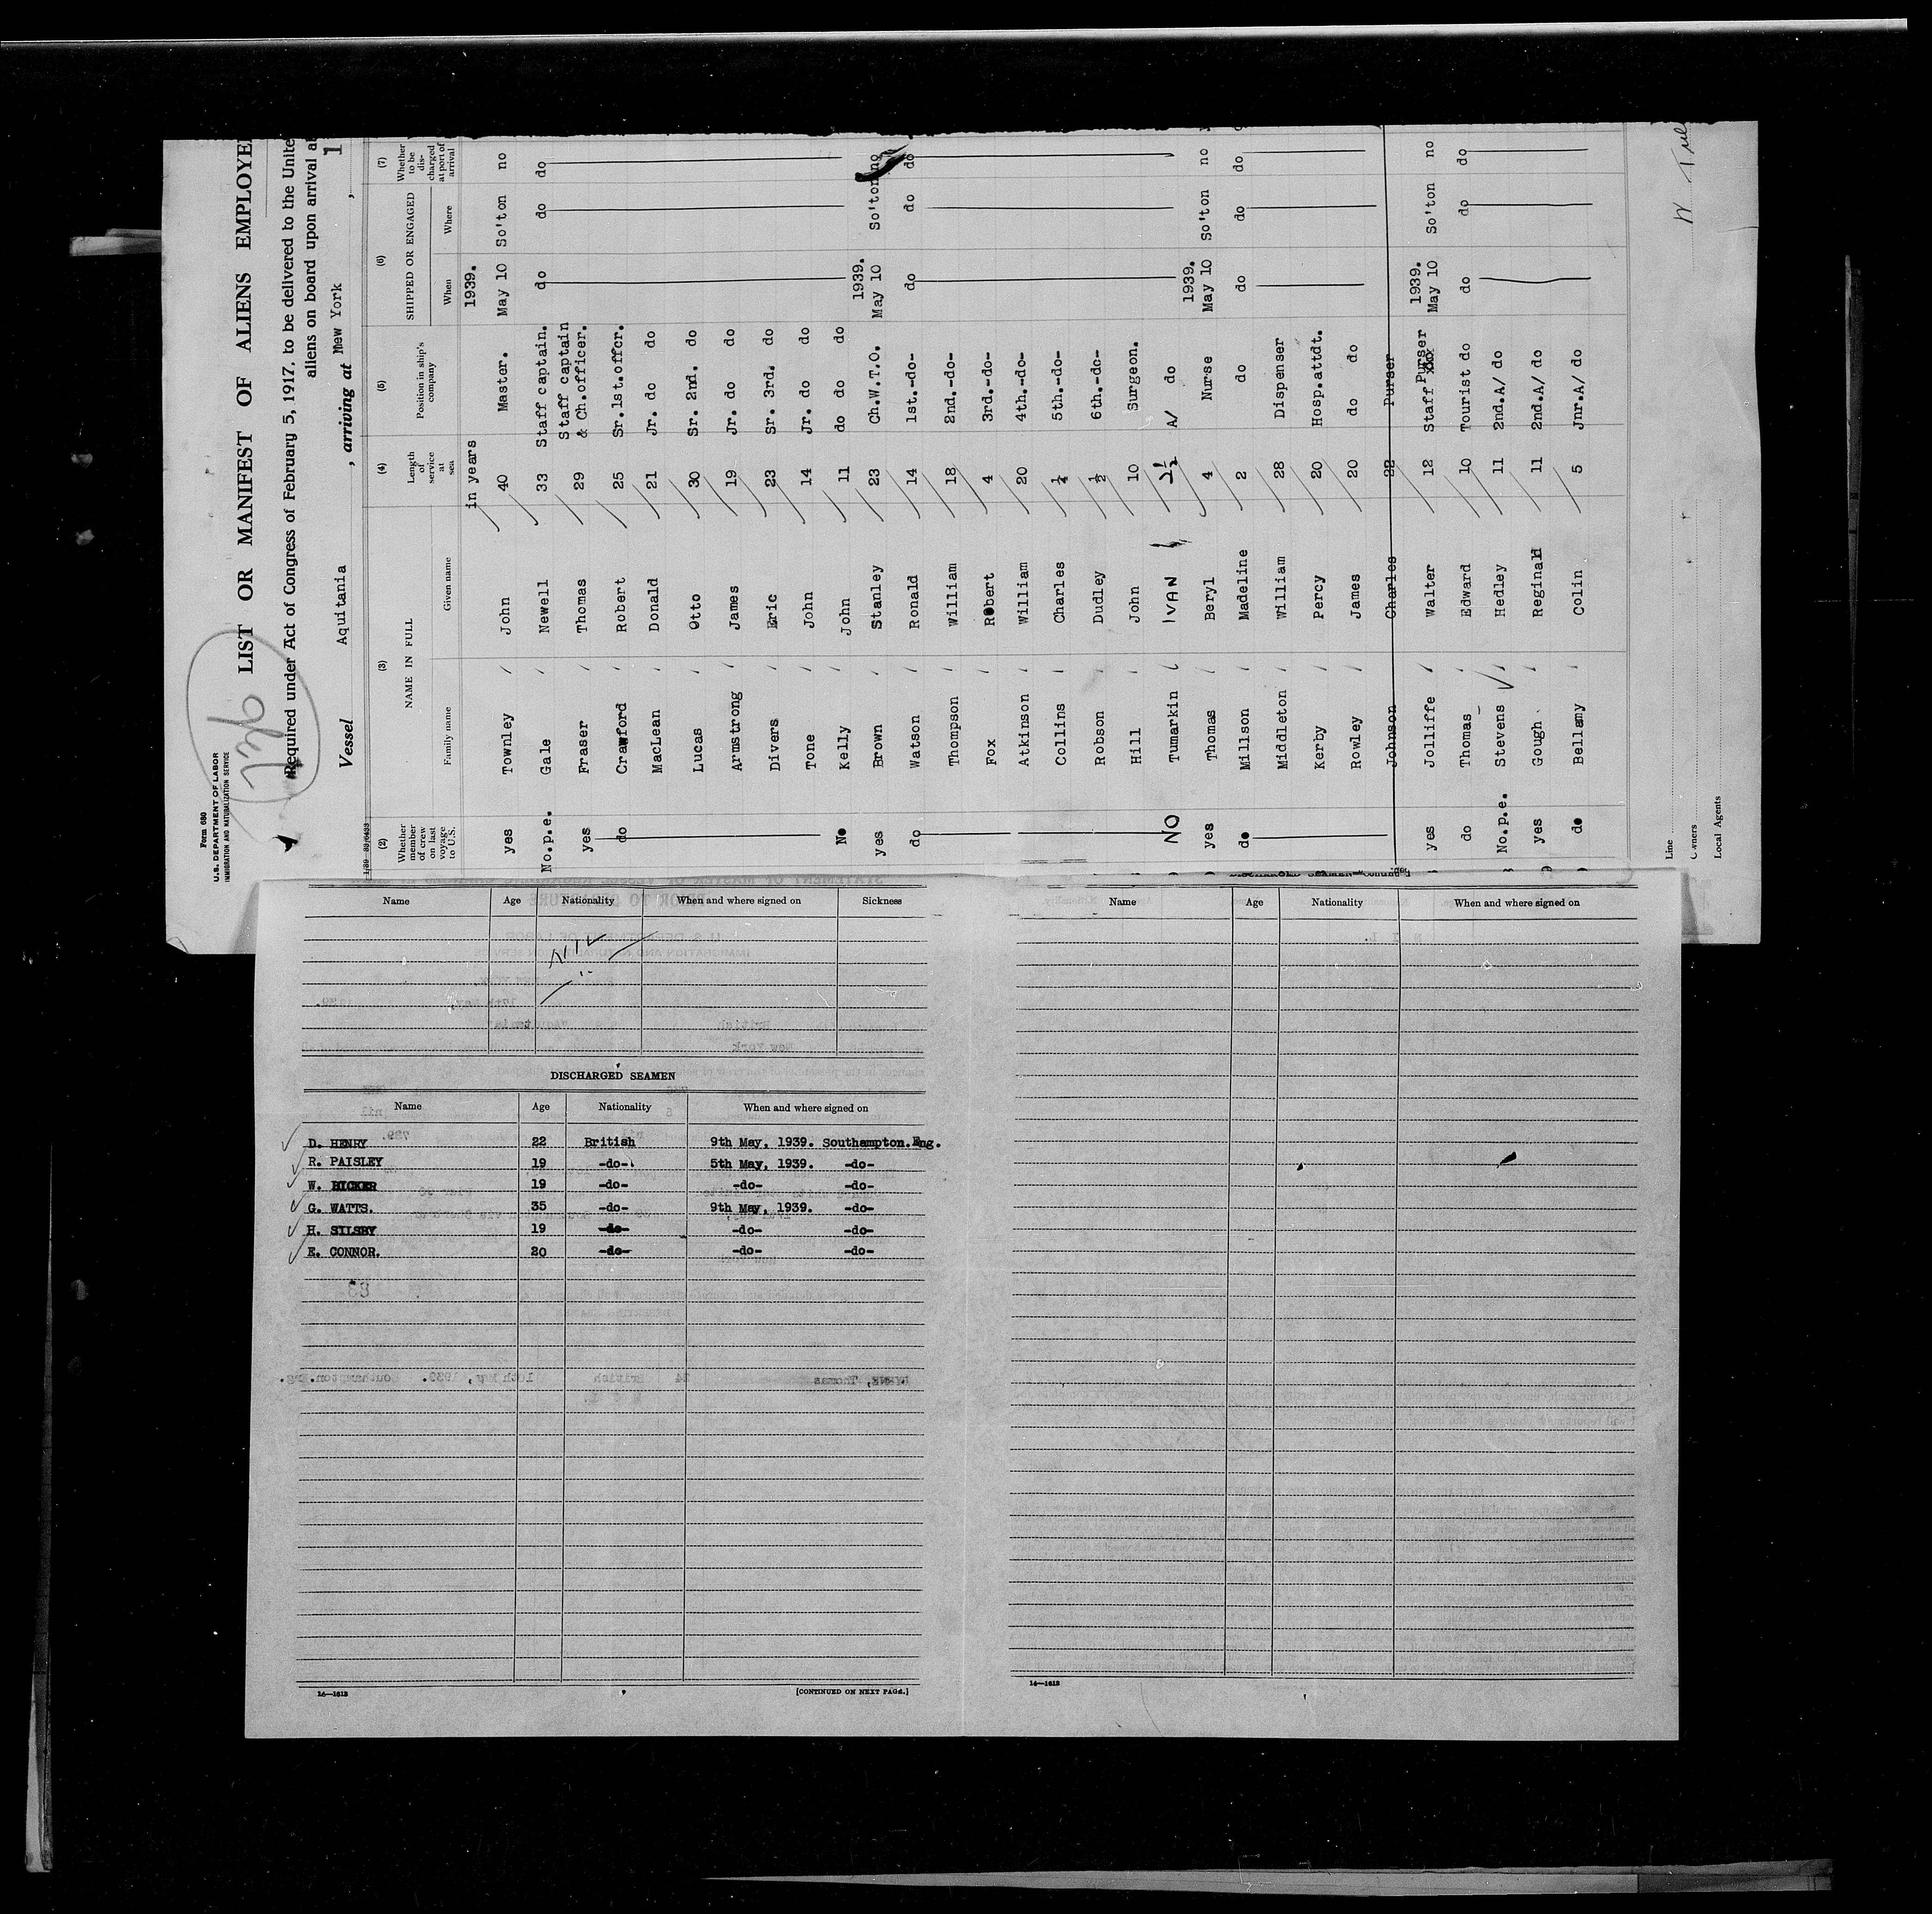 Form 680
U.S. DEPARTMENT OF LABOR
IMMIGRATION AND NATURALIZATION SERVICE
LIST OR MANIFEST OF ALIENS EMPLOYE
Required under Act of Congress of February 5, 1917, to be delivered to the Unite
aliens on board upon arrival a
Vessel Aquitania , arriving at New York , 1
(2) (3) (4) (5) (6) (7)
Whether member of crew on last voyage to U.S. NAME IN FULL Family name Given name Length of service at sea Position in ship's company SHIPPED OR ENGAGED When Where Whether to be discharged at port of arrival
in years 1939.
yes Townley John 40 Master. May 10 So'ton no
No.p.e. Gale Newell 33 Staff captain. do do do
yes Fraser Thomas 29 Staff captain & Ch.officer.
do Crawford Robert 25 Sr.1st.offcr.
MacLean Donald 21 Jr. do do
Lucas Otto 30 Sr. 2nd. do
Armstrong James 19 Jr. do do
Divers Eric 23 Sr. 3rd. do
Tone John 14 Jr. do do
No Kelly John 11 do do do
1939.
yes Brown Stanley 23 Ch.W.T.O. May 10 So'ton no
do Watson Ronald 14 1st.-do- do do do
Thompson William 18 2nd.-do-
Fox Robert 4 3rd.-do-
Atkinson William 20 4th.-do-
Collins Charles ¼ 5th.-do-
Robson Dudley ½ 6th.-do-
Hill John 10 Surgeon.
NO Tumarkin IVAN 2½ A/ do
1939.
yes Thomas Beryl 4 Nurse May 10 So'ton no
do Millson Madeline 2 do do do do
Middleton William 28 Dispenser
Kerby Percy 20 Hosp.attdt.
Rowley James 20 do do
Johnson Charles 22 Purser
1939.
yes Jolliffe Walter 12 Staff Purser May 10 So'ton no
do Thomas Edward 10 Tourist do do do do
No.p.e. Stevens Hedley 11 2nd.A/ do
yes Gough Reginald 11 2nd.A/ do
do Bellamy Colin 5 Jnr.A/ do
Line
Owners
Local Agents
Name Age Nationality When and where signed on Sickness
DISCHARGED SEAMEN
Name Age Nationality When and where signed on
D. HENRY 22 British 9th May, 1939. Southampton.Eng.
R. PAISLEY 19 -do- 5th May, 1939. -do-
W. BICKER 19 -do- -do- -do-
G. WATTS. 35 -do- 9th May, 1939. -do-
H. SILSBY 19 -do- -do- -do-
E. CONNOR. 20 -do- -do- -do-
14—1613 [CONTINUED ON NEXT PAGE.]
Name Age Nationality When and where signed on
14—1613